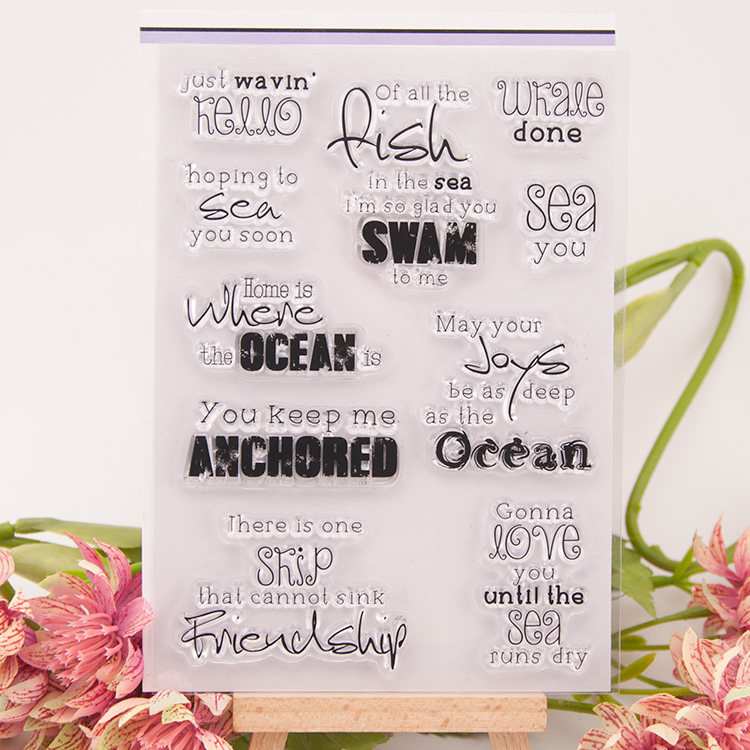 just wavin'
hello
Of all the
fish
in the sea
i'm so glad you
SWAM
to me
Whale
done
hoping to
sea
you soon
sea
you
Home is
Where
the OCEAN is
May your
Joys
be as deep
as the
Ocean
You keep me
ANCHORED
There is one
ship
that cannot sink
Friendship
Gonna
love
you
until the
sea
runs dry